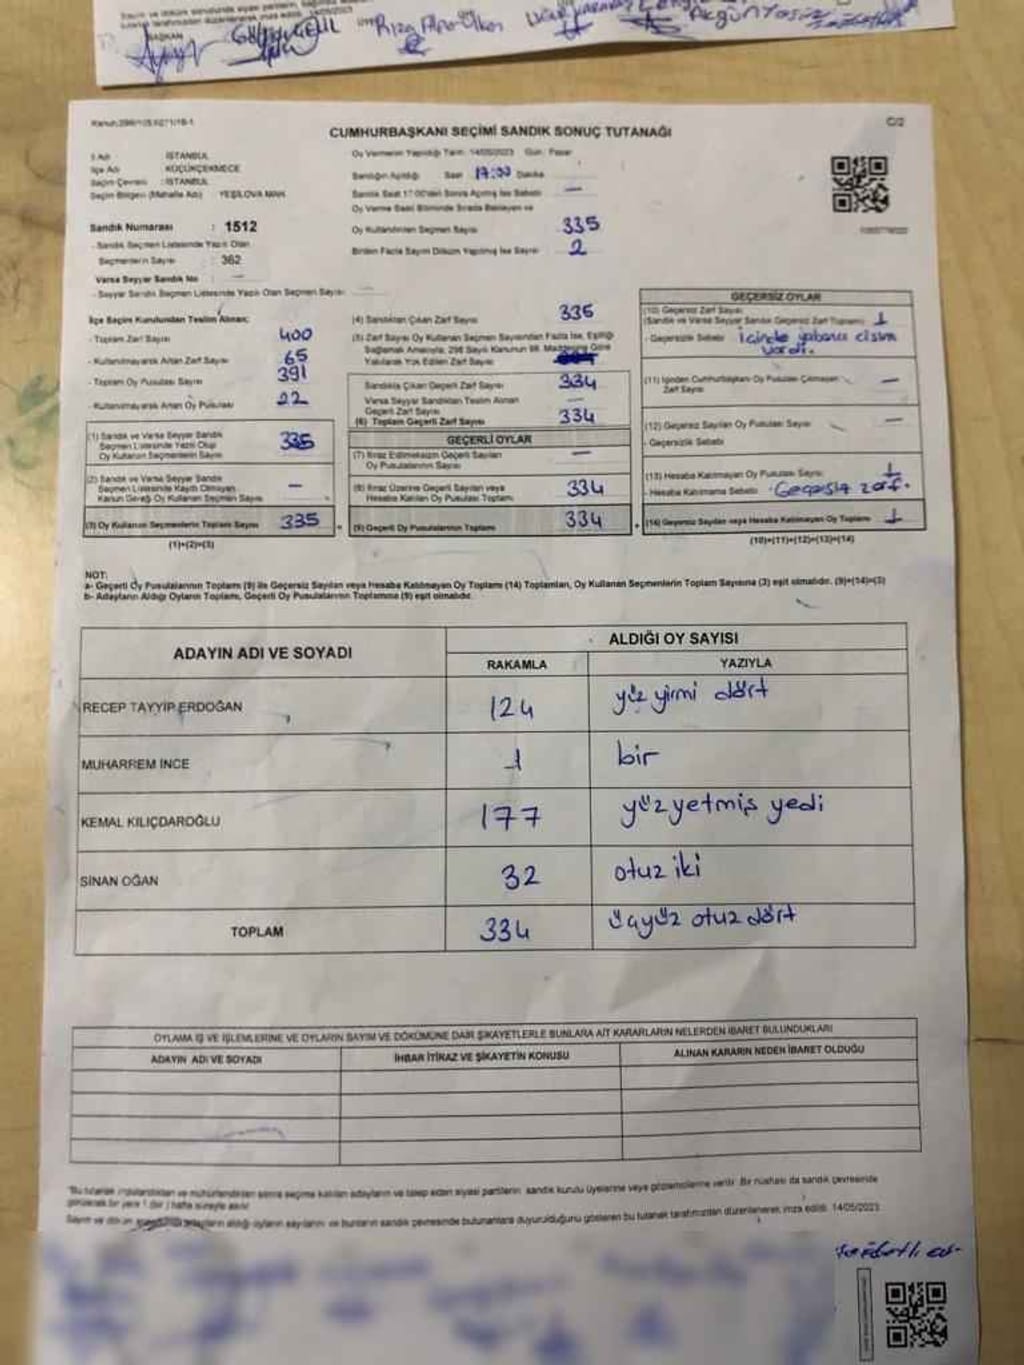 BAŞKAN
Kanun:298/105,6271/18-1
C/2
CUMHURBAŞKANI SEÇİMİ SANDIK SONUÇ TUTANAĞI
İl Adı : İSTANBUL
İlçe Adı : KÜÇÜKÇEKMECE
Seçim Çevresi : İSTANBUL
Seçim Bölgesi (Mahalle Adı) : YEŞİLOVA MAH.
Oy Vermenin Yapıldığı Tarih: 14/05/2023 Gün: Pazar
Sandığın Açıldığı Saat 17:00 Dakika
Sandık Saat 17:00'den Sonra Açılmış İse Sebebi —
Oy Verme Saati Bitiminde Sırada Bekleyen ve
Oy Kullandırılan Seçmen Sayısı 335
Birden Fazla Sayım Döküm Yapılmış İse Sayısı 2
Sandık Numarası : 1512
- Sandık Seçmen Listesinde Yazılı Olan
Seçmenlerin Sayısı : 362
Varsa Seyyar Sandık No : —
- Seyyar Sandık Seçmen Listesinde Yazılı Olan Seçmen Sayısı:
İlçe Seçim Kurulundan Teslim Alınan;
- Toplam Zarf Sayısı 400
- Kullanılmayarak Artan Zarf Sayısı 65
- Toplam Oy Pusulası Sayısı 391
- Kullanılmayarak Artan Oy Pusulası 22
(1) Sandık ve Varsa Seyyar Sandık
Seçmen Listesinde Yazılı Olup
Oy Kullanan Seçmenlerin Sayısı 335
(2) Sandık ve Varsa Seyyar Sandık
Seçmen Listesinde Kayıtlı Olmayan
Kanun Gereği Oy Kullanan Seçmen Sayısı —
(3) Oy Kullanan Seçmenlerin Toplam Sayısı 335
(1)+(2)=(3)
(4) Sandıktan Çıkan Zarf Sayısı 335
(5) Zarf Sayısı Oy Kullanan Seçmen Sayısından Fazla İse, Eşitliği
Sağlamak Amacıyla, 298 Sayılı Kanunun 98. Maddesine Göre
Yakılarak Yok Edilen Zarf Sayısı
Sandıkta Çıkan Geçerli Zarf Sayısı 334
Varsa Seyyar Sandıktan Teslim Alınan
Geçerli Zarf Sayısı —
(6) Toplam Geçerli Zarf Sayısı 334
GEÇERLİ OYLAR
(7) İtiraz Edilmeksizin Geçerli Sayılan
Oy Pusulalarının Sayısı —
(8) İtiraz Üzerine Geçerli Sayılan veya
Hesaba Katılan Oy Pusulası Toplamı 334
(9) Geçerli Oy Pusulalarının Toplamı 334
GEÇERSİZ OYLAR
(10) Geçersiz Zarf Sayısı
(Sandık ve Varsa Seyyar Sandık Geçersiz Zarf Toplamı) 1
- Geçersizlik Sebebi İçinde yabancı cisim
vardı.
(11) İçinden Cumhurbaşkanı Oy Pusulası Çıkmayan
Zarf Sayısı —
(12) Geçersiz Sayılan Oy Pusulası Sayısı —
- Geçersizlik Sebebi
(13) Hesaba Katılmayan Oy Pusulası Sayısı 1
- Hesaba Katılmama Sebebi Geçersiz zarf.
(14) Geçersiz Sayılan veya Hesaba Katılmayan Oy Toplamı 1
(10)+(11)+(12)+(13)=(14)
NOT:
a- Geçerli Oy Pusulalarının Toplamı (9) ile Geçersiz Sayılan veya Hesaba Katılmayan Oy Toplamı (14) Toplamları, Oy Kullanan Seçmenlerin Toplam Sayısına (3) eşit olmalıdır. (9)+(14)=(3)
b- Adayların Aldığı Oyların Toplamı, Geçerli Oy Pusulalarının Toplamına (9) eşit olmalıdır.
ADAYIN ADI VE SOYADI
ALDIĞI OY SAYISI
RAKAMLA YAZIYLA
RECEP TAYYİP ERDOĞAN 124 yüz yirmi dört
MUHARREM İNCE 1 bir
KEMAL KILIÇDAROĞLU 177 yüz yetmiş yedi
SİNAN OĞAN 32 otuz iki
TOPLAM 334 üçyüz otuz dört
OYLAMA İŞ VE İŞLEMLERİNE VE OYLARIN SAYIM VE DÖKÜMÜNE DAİR ŞİKAYETLERLE BUNLARA AİT KARARLARIN NELERDEN İBARET BULUNDUKLARI
ADAYIN ADI VE SOYADI İHBAR İTİRAZ VE ŞİKAYETİN KONUSU ALINAN KARARIN NEDEN İBARET OLDUĞU
*Bu tutanak imzalandıktan ve mühürlendikten sonra seçime katılan adayların ve talep eden siyasi partilerin sandık kurulu üyelerine veya gözlemcilerine verilir. Bir nüshası da sandık çevresinde
görülecek bir yere 1 (bir) hafta süreyle asılır.
Sayım ve döküm adayların aldığı oyların sayılarını ve bunların sandık çevresinde bulunanlara duyurulduğunu gösteren bu tutanak tarafımızdan düzenlenerek imza edildi. 14/05/2023